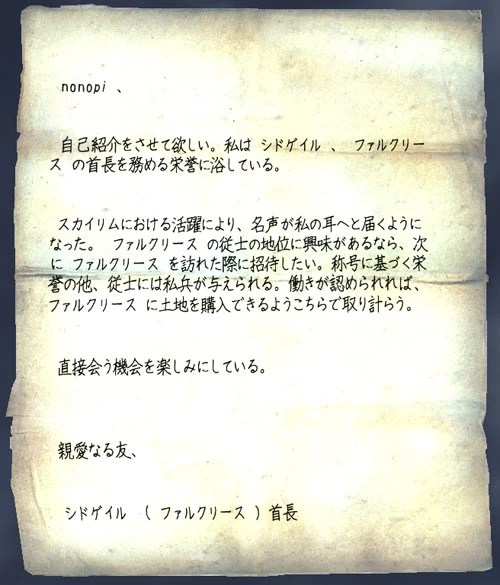 nonopi 、
自己紹介をさせて欲しい。私は シドゲイル 、 ファルクリー
ス の首長を務める栄誉に浴している。
スカイリムにおける活躍により、名声が私の耳へと届くように
なった。 ファルクリース の従士の地位に興味があるなら、次
に ファルクリース を訪れた際に招待したい。称号に基づく栄
誉の他、従士には私兵が与えられる。働きが認められれば、
ファルクリース に土地を購入できるようこちらで取り計らう。
直接会う機会を楽しみにしている。
親愛なる友、
シドゲイル ( ファルクリース ) 首長